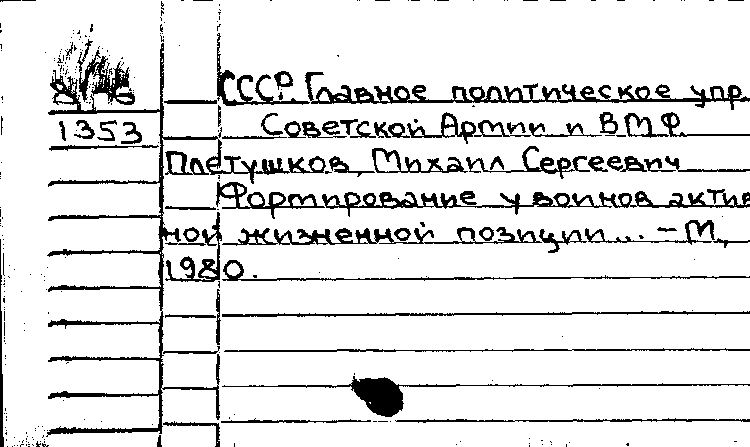 СССР. Главное политическое упр.
1353 Советской Армии и ВМФ.
Плетушков, Михаил Сергеевич
Формирование у воинов актив
ной жизненной позиции... – М.,
1980.